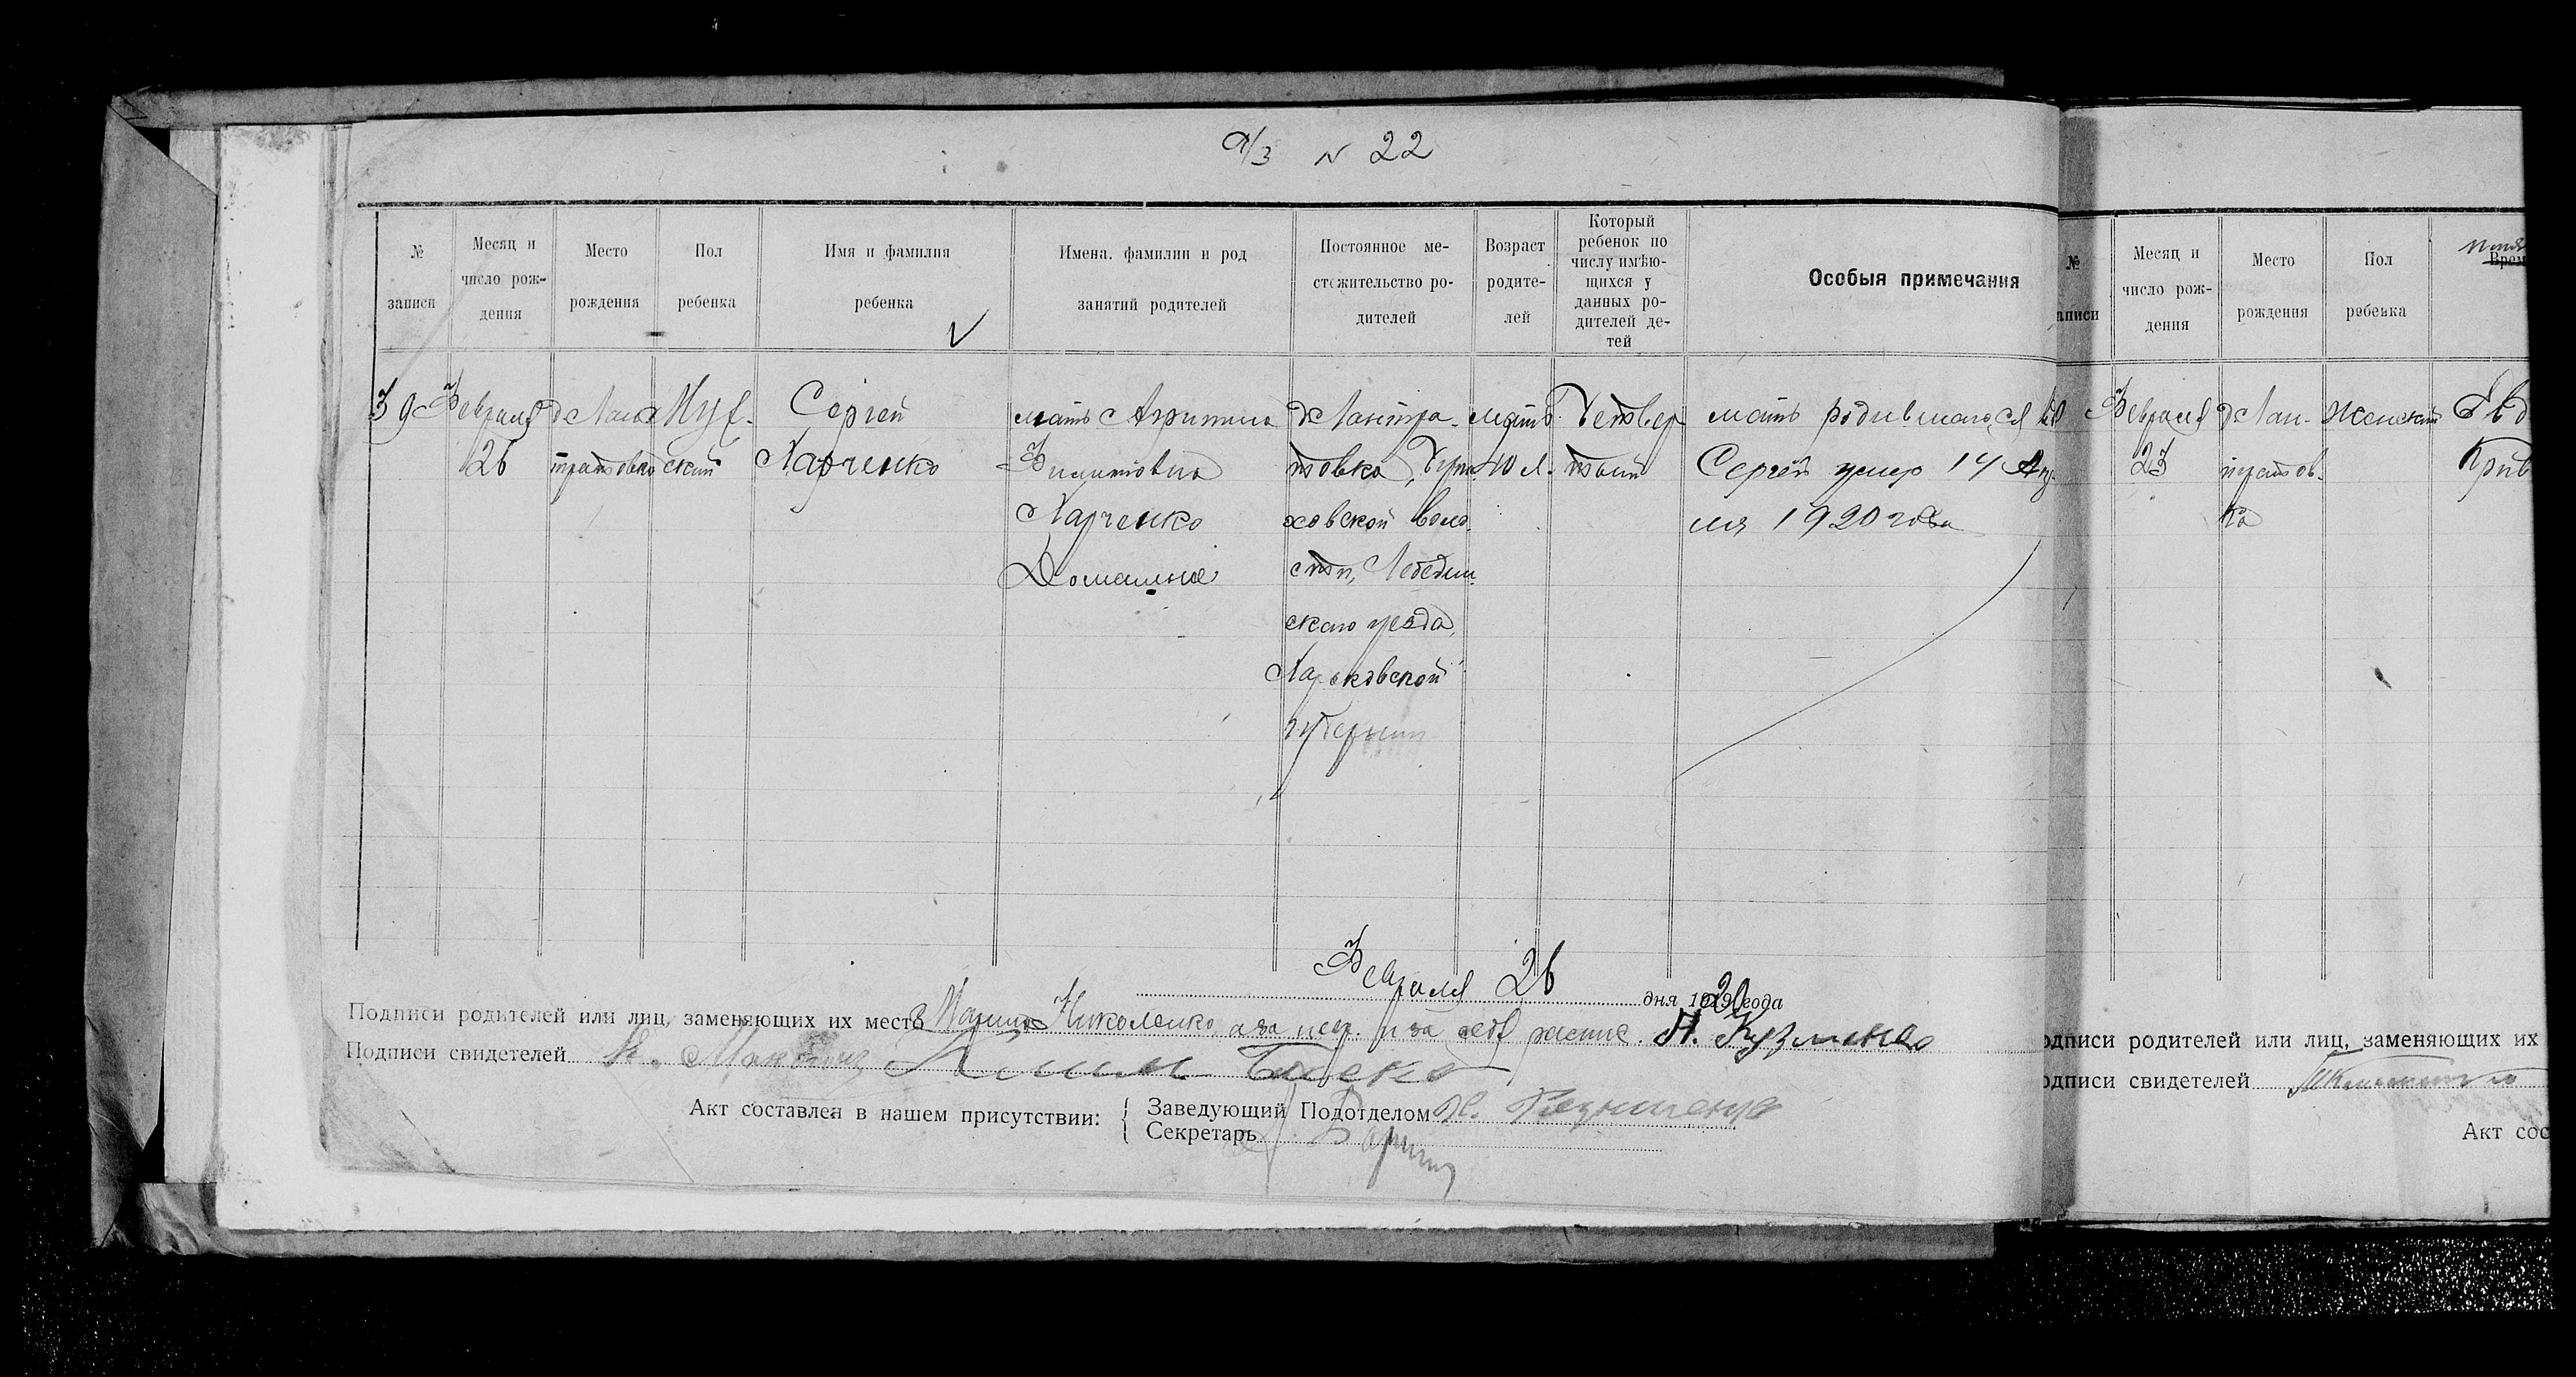 а/з N 22
№ записи
Месяц и число рож-дения
Место рождения
Пол ребенка
Имя и фамилия ребенка
Имена, фамилии и род занятий родителей
Постоянное ме-стожительство ро-дителей
Возраст родите-лей
Который ребенок по числу имѣю-щихся у данных ро-дителей де-тей
Особыя примечания
39
Февраля
26
д Лан
тратовка
Муж-
ский
Сергей
Харченко
мать
Филиповна
Харченко
Домашнее
д Лантра-
товка,
ховской воло-
сти, Лебедин-
скаго уезда,
Харьковской
губернии
мать
40 л.
Четвер-
тый
мать родившагося
Сергей умер 14 Апр-
ля 1920 года
Февраля 26 дня 1920 года
Подписи родителей или лиц, заменяющих их место Николенко, а за негр. и за себя распис. Н. Кузменко
Подписи свидетелей
Акт составлен в нашем присутствии:
Заведующий Подотделом
Секретарь
№
аписи
Месяц и число рож-дения
Место рождения
Пол ребенка
Врем
Февраля
23
д Лан-
тратов-
ка
Женский
Евд
Крив
одписи родителей или лиц, заменяющих их
одписи свидетелей
Акт сос